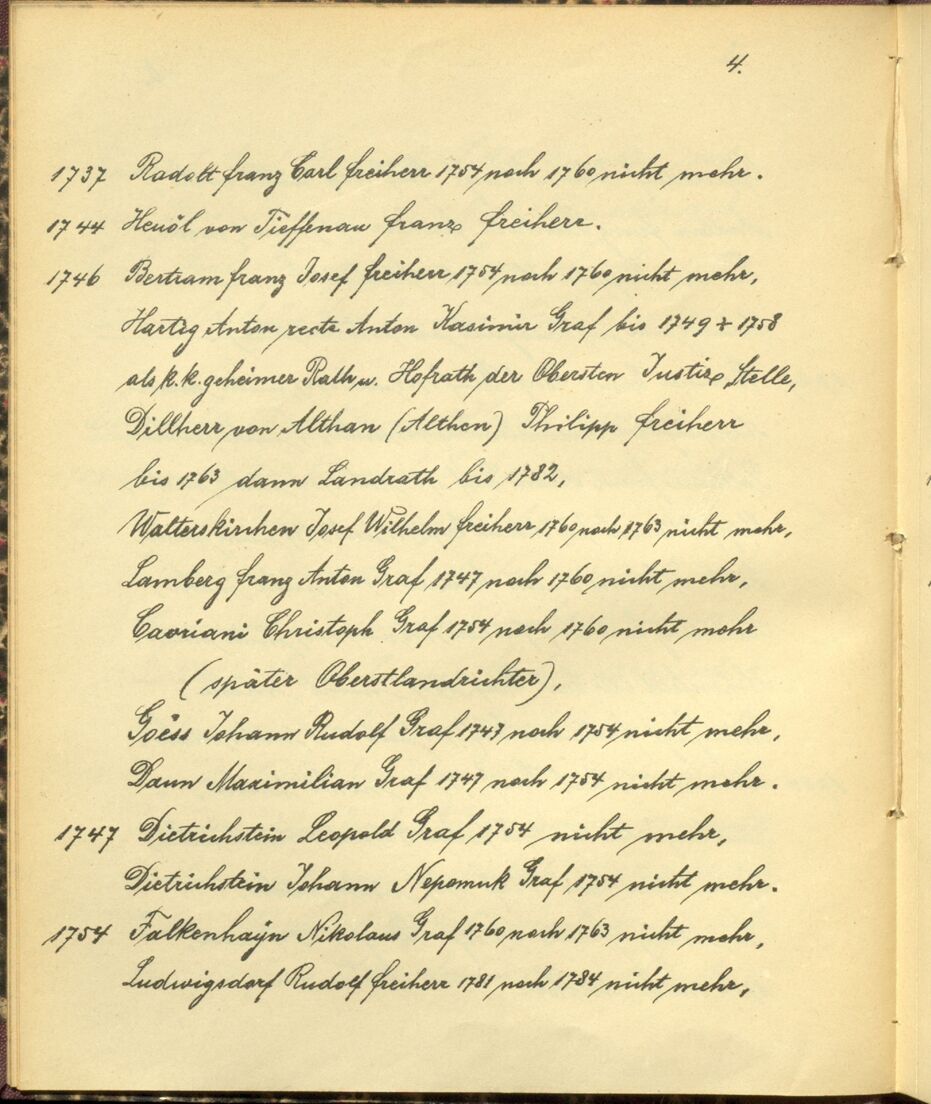 4.
1737 Radolt franz Carl freiherr 1754 noch 1760 nicht mehr.
1744 Heuöl von Tieffenau franz freiherr.
1746 Bertram franz Josef freiherr 1754 noch 1760 nicht mehr,
Hartig Anton recte Anton Kasimir Graf bis 1749 + 1758
als k. k. geheimer Rath u. Hofrath der Obersten Justiz Stelle,
Dillherr von Althan (Althen) Philipp freiherr
bis 1763 dann Landrath bis 1782,
Walterskirchen Josef Wilhelm freiherr 1760 noch 1763 nicht mehr,
Lamberg franz Anton Graf 1747 noch 1760 nicht mehr,
Cavriani Christoph Graf 1754 noch 1760 nicht mehr
(später Oberstlandrichter),
Goëss Johann Rudolf Graf 1747 noch 1754 nicht mehr,
Daun Maximilian Graf 1747 noch 1754 nicht mehr.
1747 Dietrichstein Leopold Graf 1754 nicht mehr,
Dietrichstein Johann Nepomuk Graf 1754 nicht mehr.
1754 Falkenhaÿn Nikolaus Graf 1760 noch 1763 nicht mehr,
Ludwigsdorf Rudolf freiherr 1781 noch 1784 nicht mehr,